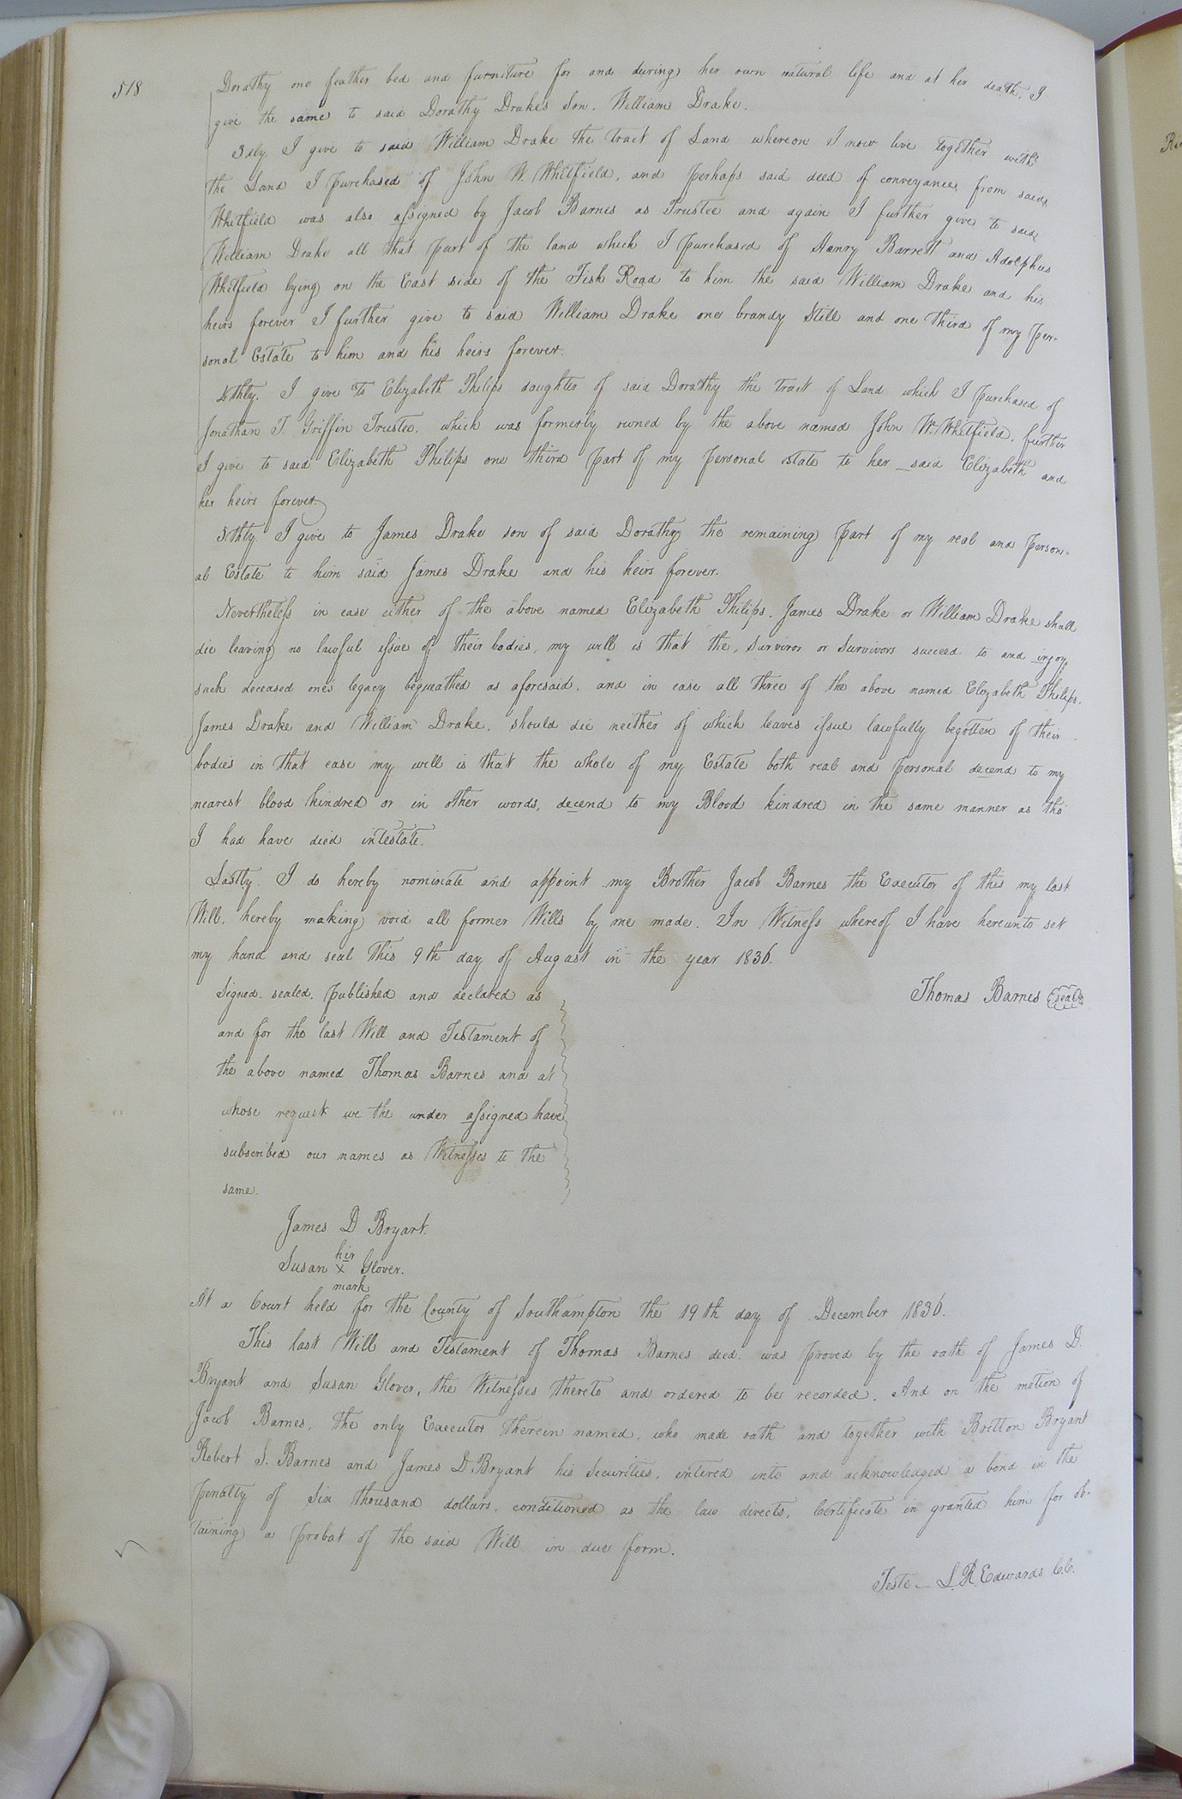 518
Dorathy one feather bed and furniture for and during her own natural life and at her death, I
give the same to said Dorathy Drakes Son. William Drake.
3dly. I give to said William Drake the tract of Land whereon I now live together with
the Land I purchased of John W. Whitfield, and perhaps said deed of conveyance from said
Whitfield was also assigned by Jacob Barnes as Trustee and again I further give to said
William Drake all that part of the land which I purchased of Henry Barrett and Adolphus
Whitfield lying on the East side of the Fish Road to him the said William Drake and his
heirs forever I further give to said William Drake one brandy Still and one third of my per-
sonal Estate to him and his heirs forever.
4thly. I give to Elizabeth Philips daughter of said Dorathy the tract of Land which I purchased of
Jonathan T Griffin Trustee. which was formerly owned by the above named John W. Whitfield, further
I give to said Elizabeth Philips one third part of my personal estate to her said Elizabeth and
her heirs forever.
5thly I give to James Drake son of said Dorathy the remaining part of my real and person-
al Estate to him said James Drake and his heirs forever.
Nevertheless in case either of the above named Elizabeth Philips. James Drake or William Drake shall
die leaving no lawful issue of their bodies, my will is that the, Survivor or Survivors succeed to and injoy
such deceased ones legacy bequeathed as aforesaid. and in case all three of the above named Elizabeth Philips,
James Drake and William Drake. should die neither of which leaves issue lawfully begotten of their
bodies in that case my will is that the whole of my Estate both real and personal decend to my
nearest blood kindred or in other words, decend to my Blood kindred in the same manner as tho'
I had have died intestate.
Lastly. I do hereby nominate and appoint my Brother Jacob Barnes the Executor of this my last
Will. hereby making void all former Wills by me made. In Witness whereof I have hereunto set
my hand and seal this 9th day of August in the year 1836.
Thomas Barnes Seal
Signed. sealed. published and declared as
and for the last Will and Testament of
the above named Thomas Barnes and at
whose request we the under assigned have
subscribed our names as Witnesses to the
same.
James D Bryant.
her
Susan x Glover.
mark
At a Court held for the County of Southampton the 19th day of December 1836.
This last Will and Testament of Thomas Barnes decd. was proved by the oath of James D.
Bryant and Susan Glover, the Witnesses thereto and ordered to be recorded. And on the motion of
Jacob Barnes. the only Executor therein named. who made oath and together with Britton Bryant
Robert S. Barnes and James D. Bryant his Securities. entered into and acknowledged a bond in the
penalty of Six thousand dollars. conditioned as the law directs, Certificate in granted him for ob-
taining a probat of the said Will in due form.
Teste L. R. Edwards C.C.